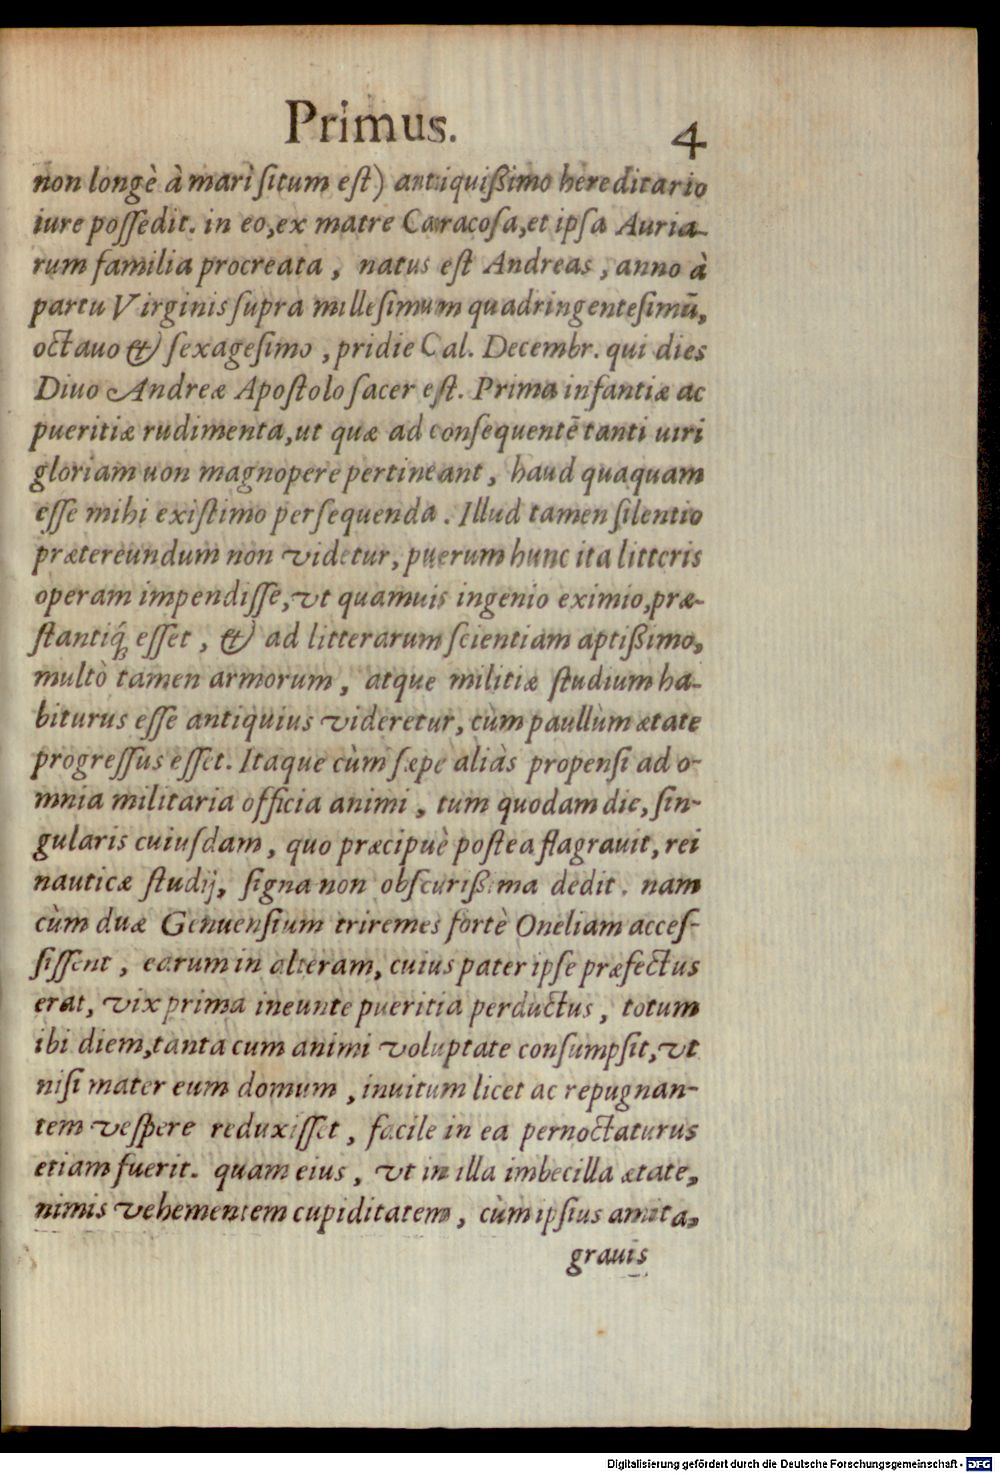 Primus. 4
non longè à mari ſitum eſt) antiquißimo hereditario
iure poſſedit. in eo, ex matre Caracoſa, et ipſa Auria-
rum familia procreata, natus eſt Andreas, anno à
partu Virginis ſupra milleſimum quadringenteſimũ,
octauo & ſexageſimo, pridie Cal. Decembr. qui dies
Diuo Andreæ Apoſtolo ſacer eſt. Prima infantiæ ac
pueritiæ rudimenta, ut quæ ad conſequentẽ tanti uiri
gloriam uon magnopere pertineant, haud quaquam
eſſe mihi exiſtimo perſequenda. Illud tamen ſilentio
prætereundum non videtur, puerum hunc ita litteris
operam impendiſſe, vt quamuis ingenio eximio, præ-
ſtantiq́; eſſet, & ad litterarum ſcientiam aptißimo,
multò tamen armorum, atque militiæ ſtudium ha-
biturus eſſe antiquius videretur, cùm paullùm ætate
progreſſus eſſet. Itaque cùm ſæpe aliàs propenſi ad o-
mnia militaria officia animi, tum quodam die, ſin-
gularis cuiuſdam, quo præcipuè poſtea flagrauit, rei
nauticæ ſtudij, ſigna non obſcurißima dedit. nam
cùm duæ Genuenſium triremes fortè Oneliam acceſ-
ſiſſent, earum in alteram, cuius pater ipſe præfectus
erat, vix prima ineunte pueritia perductus, totum
ibi diem, tanta cum animi voluptate conſumpſit, vt
niſi mater eum domum, inuitum licet ac repugnan-
tem veſpere reduxiſſet, facile in ea pernoctaturus
etiam fuerit. quam eius, vt in illa imbecilla ætate,
nimis vehementem cupiditatem, cùm ipſius amita,
grauis
Digitalisierung gefördert durch die Deutsche Forschungsgemeinschaft - DFG